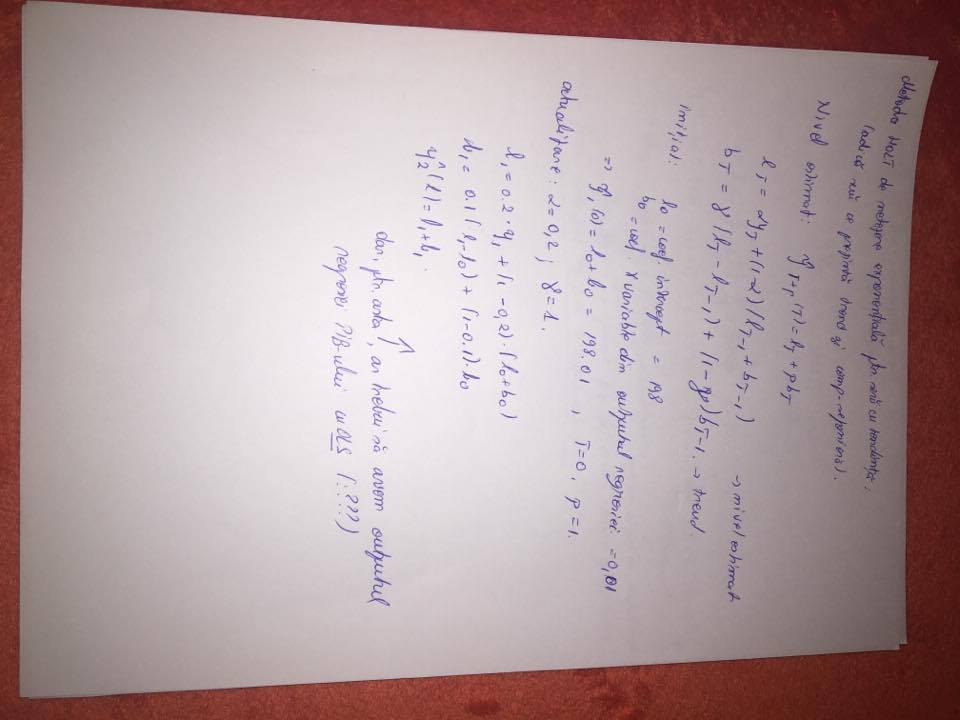 Metoda HOLT de netezire exponențială ptr. serii cu tendință.
(adică care se prezintă trend și comp. neperiodică).
Nivel estimat: ŷ_{T+p}(T) = l_T + p b_T
l_T = α y_T + (1-α)(l_{T-1} + b_{T-1}) → nivel estimat
b_T = γ (l_T - l_{T-1}) + (1-γ) b_{T-1} → trend.
inițial: l_0 = coef intercept = 198
b_0 = coef. X variable din outputul regresiei = 0,01
⇒ ŷ_1(0) = l_0 + b_0 = 198.01, T=0, p=1.
actualizare: α=0,2; γ=1.
l_1 = 0.2 · y_1 + (1-0,2) · (l_0+b_0)
b_1 = 0.1 (l_1-l_0) + (1-0.1) · b_0
ŷ_2(1) = l_1 + b_1.
dar, ptr. asta, ar trebui să avem outputul
regresiei PIB-ului cu OLS (:???)